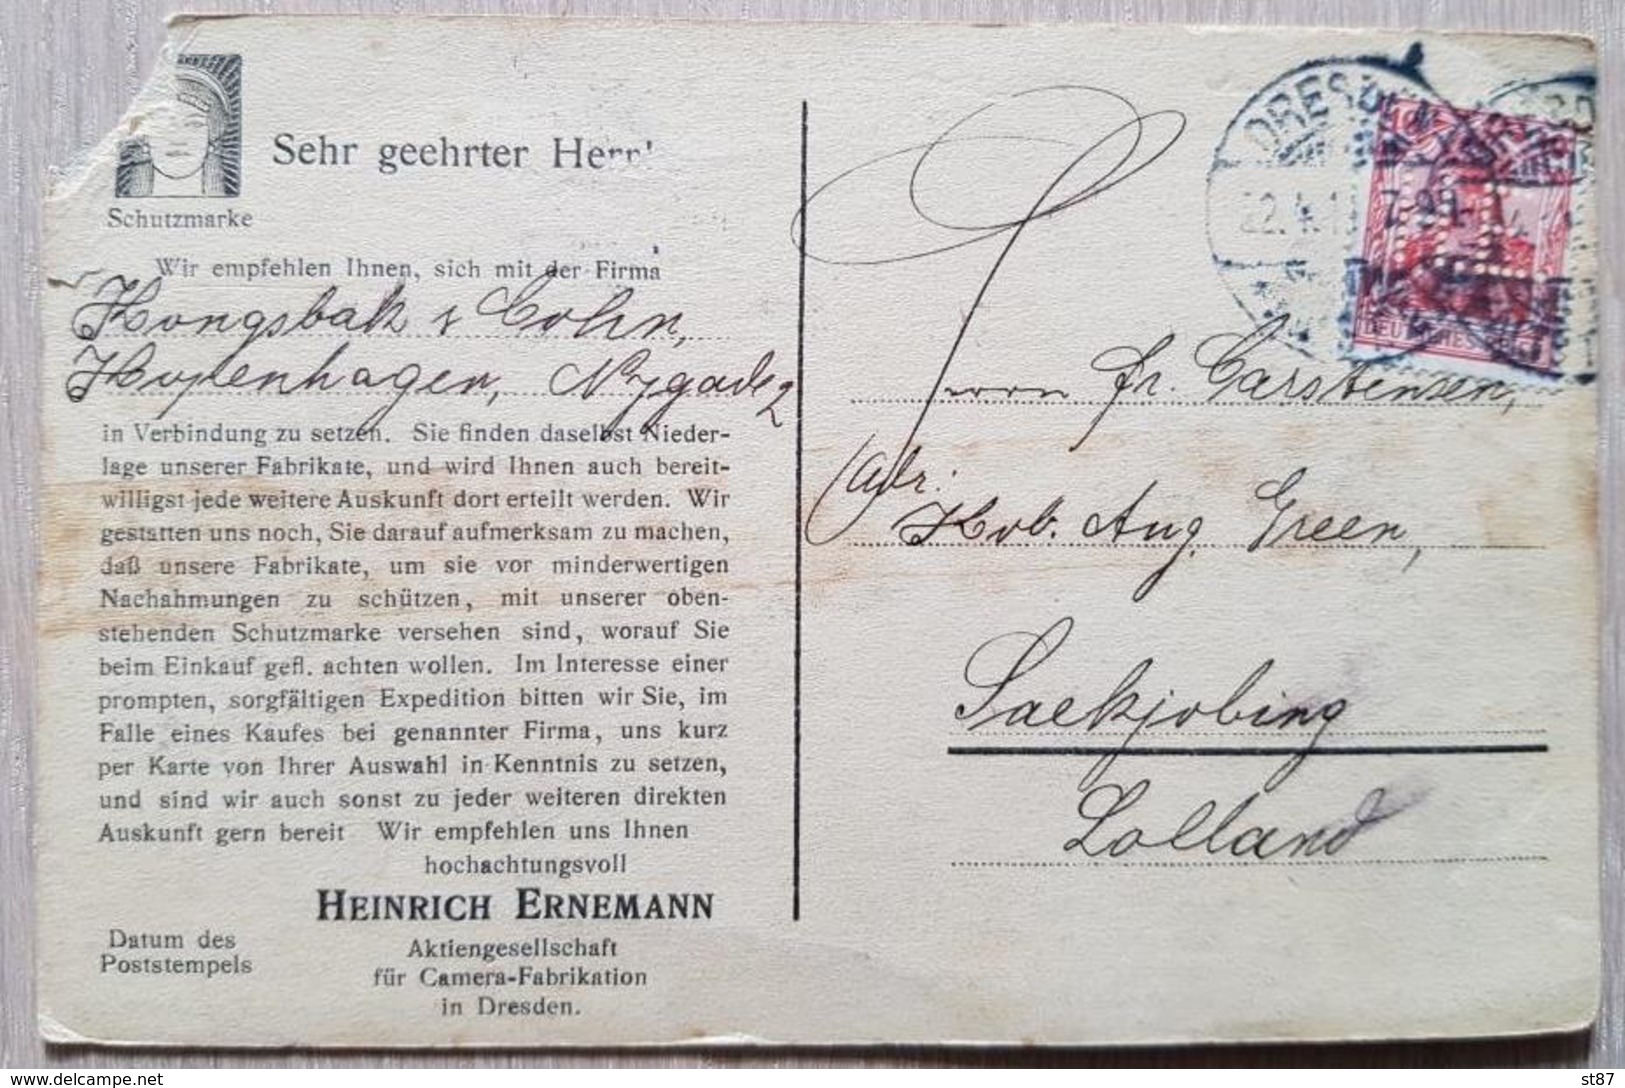 Schutzmarke
Sehr geehrter Herr!
Wir empfehlen Ihnen, sich mit der Firma
Kongsbak & Cohn,
Kopenhagen, Nygade 2
in Verbindung zu setzen. Sie finden daselbst Nieder-
lage unserer Fabrikate, und wird Ihnen auch bereit-
willigst jede weitere Auskunft dort erteilt werden. Wir
gestatten uns noch, Sie darauf aufmerksam zu machen,
daß unsere Fabrikate, um sie vor minderwertigen
Nachahmungen zu schützen, mit unserer oben-
stehenden Schutzmarke versehen sind, worauf Sie
beim Einkauf gefl. achten wollen. Im Interesse einer
prompten, sorgfältigen Expedition bitten wir Sie, im
Falle eines Kaufes bei genannter Firma, uns kurz
per Karte von Ihrer Auswahl in Kenntnis zu setzen,
und sind wir auch sonst zu jeder weiteren direkten
Auskunft gern bereit Wir empfehlen uns Ihnen
hochachtungsvoll
HEINRICH ERNEMANN
Aktiengesellschaft
für Camera-Fabrikation
in Dresden.
Datum des
Poststempels
DRESDEN
22.4.1 7-8
10
DEUTSCHES REICH
Herrn Fr. Carstensen,
Adr.
Kob. Aug. Green,
Saekjobing
Lolland
delcampe.net
st87